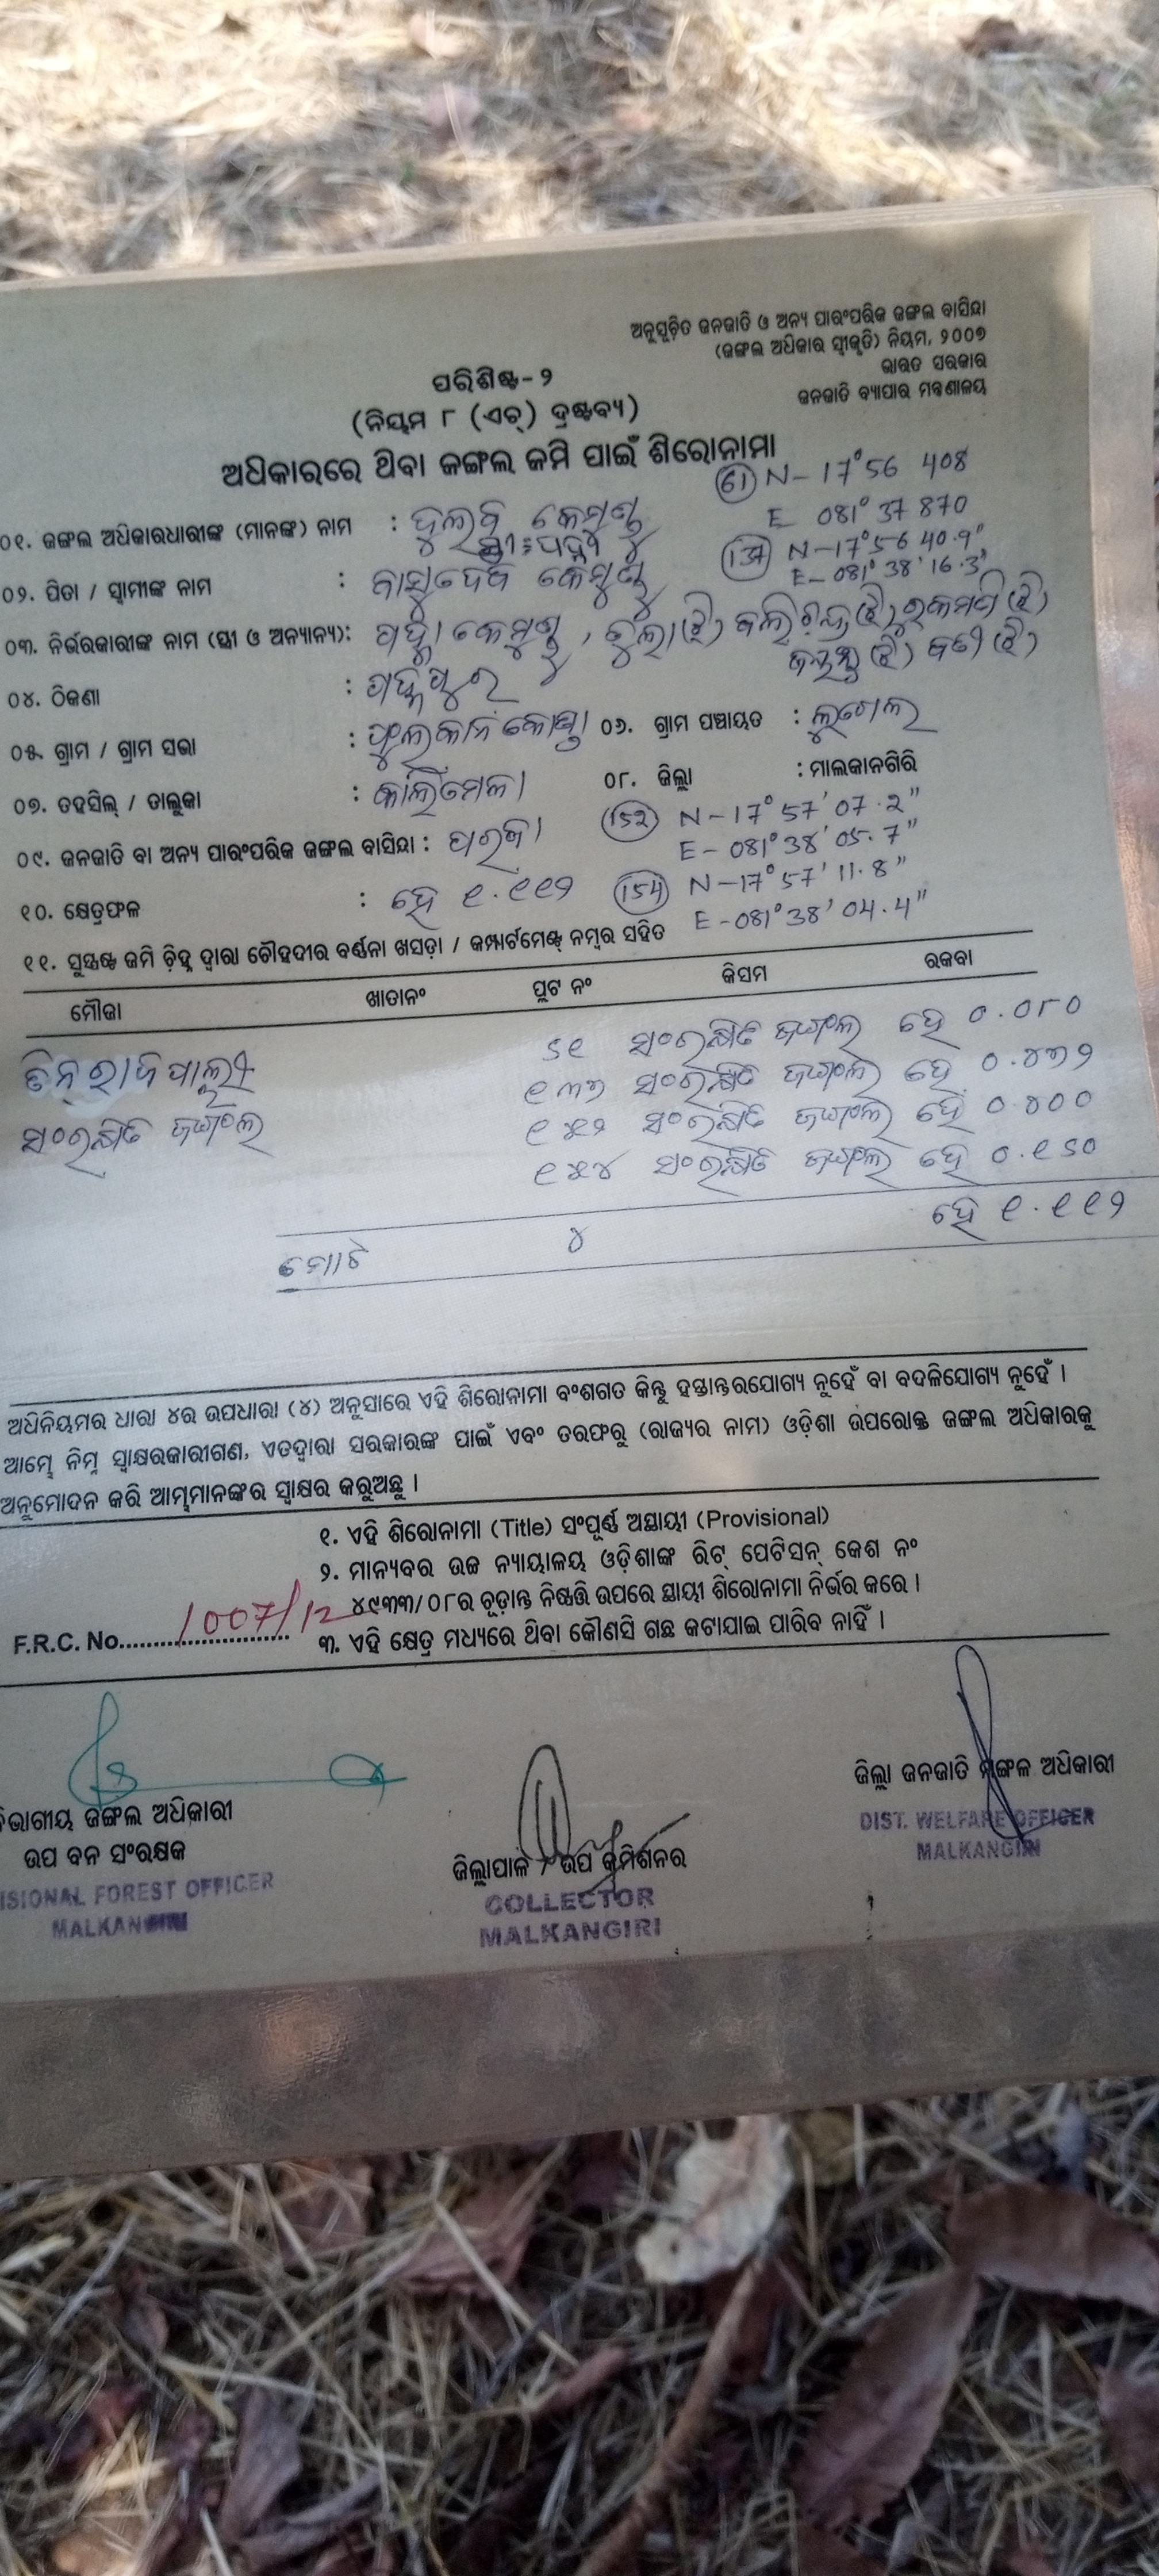 ଅନୁସୂଚିତ ଜନଜାତି ଓ ଅନ୍ୟ ପାରଂପରିକ ଜଙ୍ଗଲ ବାସିନ୍ଦା
(ଜଙ୍ଗଲ ଅଧିକାର ସ୍ୱୀକୃତି) ନିୟମ, ୨୦୦୭
ଭାରତ ସରକାର
ଜନଜାତି ବ୍ୟାପାର ମନ୍ତ୍ରଣାଳୟ
ପରିଶିଷ୍ଟ-୨
(ନିୟମ ୮ (ଏଚ୍) ଦ୍ରଷ୍ଟବ୍ୟ)
ଅଧିକାରରେ ଥିବା ଜଙ୍ଗଲ ଜମି ପାଇଁ ଶିରୋନାମା
(61) N- 17°56 408
E 081° 37 870
୦୧. ଜଙ୍ଗଲ ଅଧିକାରଧାରୀଙ୍କ (ମାନଙ୍କ) ନାମ :
(137) N-17°56 40.9"
E- 081° 38' 16.3"
୦୨. ପିତା / ସ୍ୱାମୀଙ୍କ ନାମ : ବାସୁଦେବ
୦୩. ନିର୍ଭରକାରୀଙ୍କ ନାମ (ସ୍ତ୍ରୀ ଓ ଅନ୍ୟାନ୍ୟ):
୦୪. ଠିକଣା :
୦୫. ଗ୍ରାମ / ଗ୍ରାମ ସଭା : ୦୬. ଗ୍ରାମ ପଞ୍ଚାୟତ :
୦୭. ତହସିଲ୍ / ତାଲୁକା : କାଲିମେଳା ୦୮. ଜିଲ୍ଲା : ମାଲକାନଗିରି
(152) N-17° 57' 07.2"
E- 081° 38' 05.7"
୦୯. ଜନଜାତି ବା ଅନ୍ୟ ପାରଂପରିକ ଜଙ୍ଗଲ ବାସିନ୍ଦା : ପରଜା
(154) N-17° 57' 11.8"
E-081° 38' 04.4"
୧୦. କ୍ଷେତ୍ରଫଳ : ହେ ୧.୧୧୨
୧୧. ସୁସ୍ପଷ୍ଟ ଜମି ଚିହ୍ନ ଦ୍ୱାରା ଚୌହଦୀର ବର୍ଣ୍ଣନା ଖସଡ଼ା / କମ୍ପାର୍ଟମେଣ୍ଟ୍ ନମ୍ବର ସହିତ
ମୌଜା ଖାତାନଂ ପ୍ଲଟ ନଂ କିସମ ରକବା
୬୧ ସଂରକ୍ଷିତ ଜଙ୍ଗଲ ହେ ୦.୦୮୦
ତିନ୍ ରାଜପାଲ୍ଲୀ ୧୩୭ ସଂରକ୍ଷିତ ଜଙ୍ଗଲ ହେ ୦.୪୭୨
ସଂରକ୍ଷିତ ଜଙ୍ଗଲ ୧୫୨ ସଂରକ୍ଷିତ ଜଙ୍ଗଲ ହେ ୦.୪୦୦
୧୫୪ ସଂରକ୍ଷିତ ଜଙ୍ଗଲ ହେ ୦.୧୬୦
ମୋଟ ୪ ହେ ୧.୧୧୨
ଅଧିନିୟମର ଧାରା ୪ର ଉପଧାରା (୪) ଅନୁସାରେ ଏହି ଶିରୋନାମା ବଂଶଗତ କିନ୍ତୁ ହସ୍ତାନ୍ତରଯୋଗ୍ୟ ନୁହେଁ ବା ବଦଳିଯୋଗ୍ୟ ନୁହେଁ ।
ଆମ୍ଭେ ନିମ୍ନ ସ୍ୱାକ୍ଷରକାରୀଗଣ, ଏତଦ୍ୱାରା ସରକାରଙ୍କ ପାଇଁ ଏବଂ ତରଫରୁ (ରାଜ୍ୟର ନାମ) ଓଡ଼ିଶା ଉପରୋକ୍ତ ଜଙ୍ଗଲ ଅଧିକାରକୁ
ଅନୁମୋଦନ କରି ଆମ୍ଭମାନଙ୍କର ସ୍ୱାକ୍ଷର କରୁଅଛୁ ।
୧. ଏହି ଶିରୋନାମା (Title) ସଂପୂର୍ଣ୍ଣ ଅସ୍ଥାୟୀ (Provisional)
୨. ମାନ୍ୟବର ଉଚ୍ଚ ନ୍ୟାୟାଳୟ ଓଡ଼ିଶାଙ୍କ ରିଟ୍ ପେଟିସନ୍ କେଶ ନଂ
୪୯୩୩/୦୮ର ଚୂଡ଼ାନ୍ତ ନିଷ୍ପତ୍ତି ଉପରେ ସ୍ଥାୟୀ ଶିରୋନାମା ନିର୍ଭର କରେ ।
F.R.C. No. 1007/12 ୩. ଏହି କ୍ଷେତ୍ର ମଧ୍ୟରେ ଥିବା କୌଣସି ଗଛ କଟାଯାଇ ପାରିବ ନାହିଁ ।
ଜିଲ୍ଲା ଜନଜାତି ମଙ୍ଗଳ ଅଧିକାରୀ
DIST. WELFARE OFFICER
MALKANGIRI
ବିଭାଗୀୟ ଜଙ୍ଗଲ ଅଧିକାରୀ
ଉପ ବନ ସଂରକ୍ଷକ
ISIONAL FOREST OFFICER
MALKANGIRI
ଜିଲ୍ଲାପାଳ / ଉପ କମିଶନର
COLLECTOR
MALKANGIRI